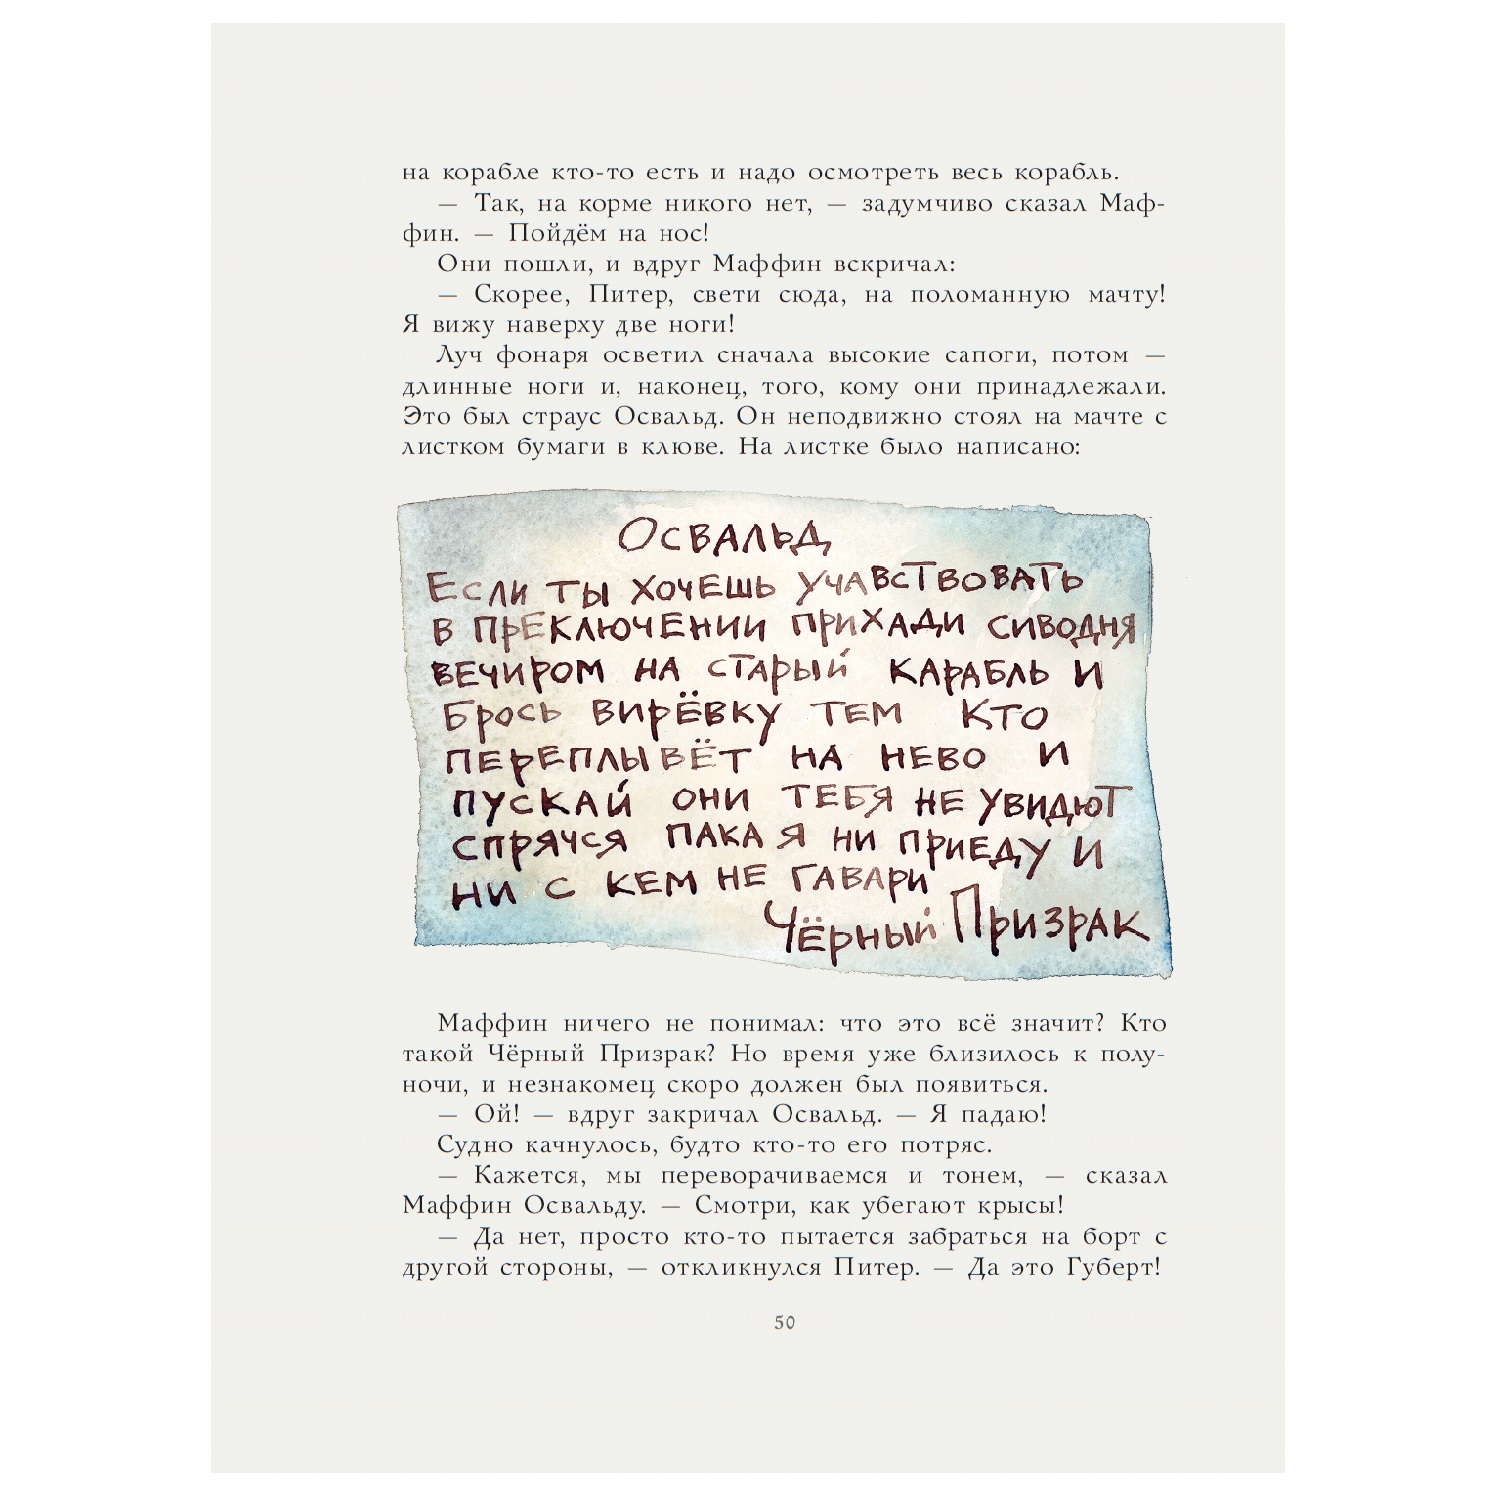 на корабле кто-то есть и надо осмотреть весь корабль.
— Так, на корме никого нет, — задумчиво сказал Маф-
фин. — Пойдём на нос!
Они пошли, и вдруг Маффин вскричал:
— Скорее, Питер, свети сюда, на поломанную мачту!
Я вижу наверху две ноги!
Луч фонаря осветил сначала высокие сапоги, потом —
длинные ноги и, наконец, того, кому они принадлежали.
Это был страус Освальд. Он неподвижно стоял на мачте с
листком бумаги в клюве. На листке было написано:
Освальд
Если ты хочешь учавствовать
в преключении прихади сиводня
вечиром на старый карабль и
брось вирёвку тем кто
переплывёт на нево и
пускай они тебя не увидют
спрячся пака я ни приеду и
ни с кем не гавари
Чёрный Призрак
Маффин ничего не понимал: что это всё значит? Кто
такой Чёрный Призрак? Но время уже близилось к полу-
ночи, и незнакомец скоро должен был появиться.
— Ой! — вдруг закричал Освальд. — Я падаю!
Судно качнулось, будто кто-то его потряс.
— Кажется, мы переворачиваемся и тонем, — сказал
Маффин Освальду. — Смотри, как убегают крысы!
— Да нет, просто кто-то пытается забраться на борт с
другой стороны, — откликнулся Питер. — Да это Губерт!
50